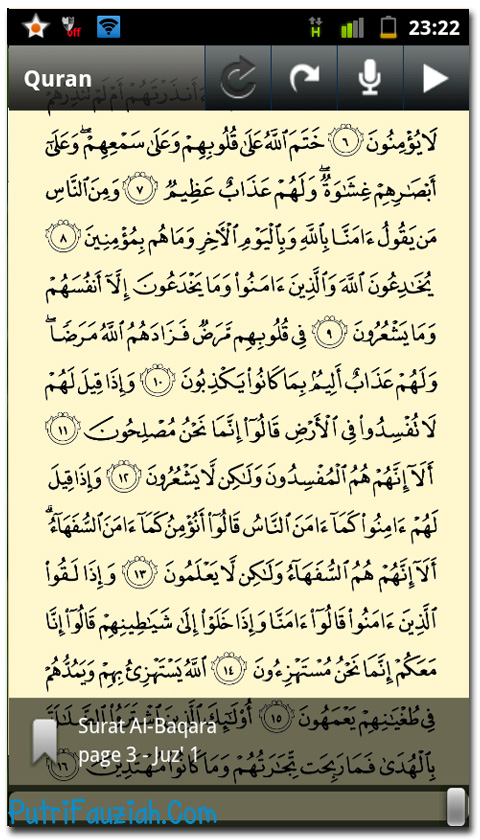 off
H
23:22
Quran
ءَأَنذَرْتَهُمْ أَمْ لَمْ تُنذِرْهُمْ
لَا يُؤْمِنُونَ ٦ خَتَمَ ٱللَّهُ عَلَىٰ قُلُوبِهِمْ وَعَلَىٰ سَمْعِهِمْ ۖ وَعَلَىٰٓ
أَبْصَٰرِهِمْ غِشَٰوَةٌ ۖ وَلَهُمْ عَذَابٌ عَظِيمٌ ٧ وَمِنَ ٱلنَّاسِ
مَن يَقُولُ ءَامَنَّا بِٱللَّهِ وَبِٱلْيَوْمِ ٱلْءَاخِرِ وَمَا هُم بِمُؤْمِنِينَ ٨
يُخَٰدِعُونَ ٱللَّهَ وَٱلَّذِينَ ءَامَنُوا۟ وَمَا يَخْدَعُونَ إِلَّآ أَنفُسَهُمْ
وَمَا يَشْعُرُونَ ٩ فِى قُلُوبِهِم مَّرَضٌ فَزَادَهُمُ ٱللَّهُ مَرَضًا ۖ
وَلَهُمْ عَذَابٌ أَلِيمٌۢ بِمَا كَانُوا۟ يَكْذِبُونَ ١٠ وَإِذَا قِيلَ لَهُمْ
لَا تُفْسِدُوا۟ فِى ٱلْأَرْضِ قَالُوٓا۟ إِنَّمَا نَحْنُ مُصْلِحُونَ ١١
أَلَآ إِنَّهُمْ هُمُ ٱلْمُفْسِدُونَ وَلَٰكِن لَّا يَشْعُرُونَ ١٢ وَإِذَا قِيلَ
لَهُمْ ءَامِنُوا۟ كَمَآ ءَامَنَ ٱلنَّاسُ قَالُوٓا۟ أَنُؤْمِنُ كَمَآ ءَامَنَ ٱلسُّفَهَآءُ ۗ
أَلَآ إِنَّهُمْ هُمُ ٱلسُّفَهَآءُ وَلَٰكِن لَّا يَعْلَمُونَ ١٣ وَإِذَا لَقُوا۟
ٱلَّذِينَ ءَامَنُوا۟ قَالُوٓا۟ ءَامَنَّا وَإِذَا خَلَوْا۟ إِلَىٰ شَيَٰطِينِهِمْ قَالُوٓا۟ إِنَّا
مَعَكُمْ إِنَّمَا نَحْنُ مُسْتَهْزِءُونَ ١٤ ٱللَّهُ يَسْتَهْزِئُ بِهِمْ وَيَمُدُّهُمْ
فِى طُغْيَٰنِهِمْ يَعْمَهُونَ ١٥ أُو۟لَٰٓئِكَ ٱلَّذِينَ ٱشْتَرَوُا۟ ٱلضَّلَٰلَةَ
Surat Al-Baqara
page 3 - Juz' 1
بِٱلْهُدَىٰ فَمَا رَبِحَت تِّجَٰرَتُهُمْ وَمَا كَانُوا۟ مُهْتَدِينَ ١٦
PutriFauziah.Com